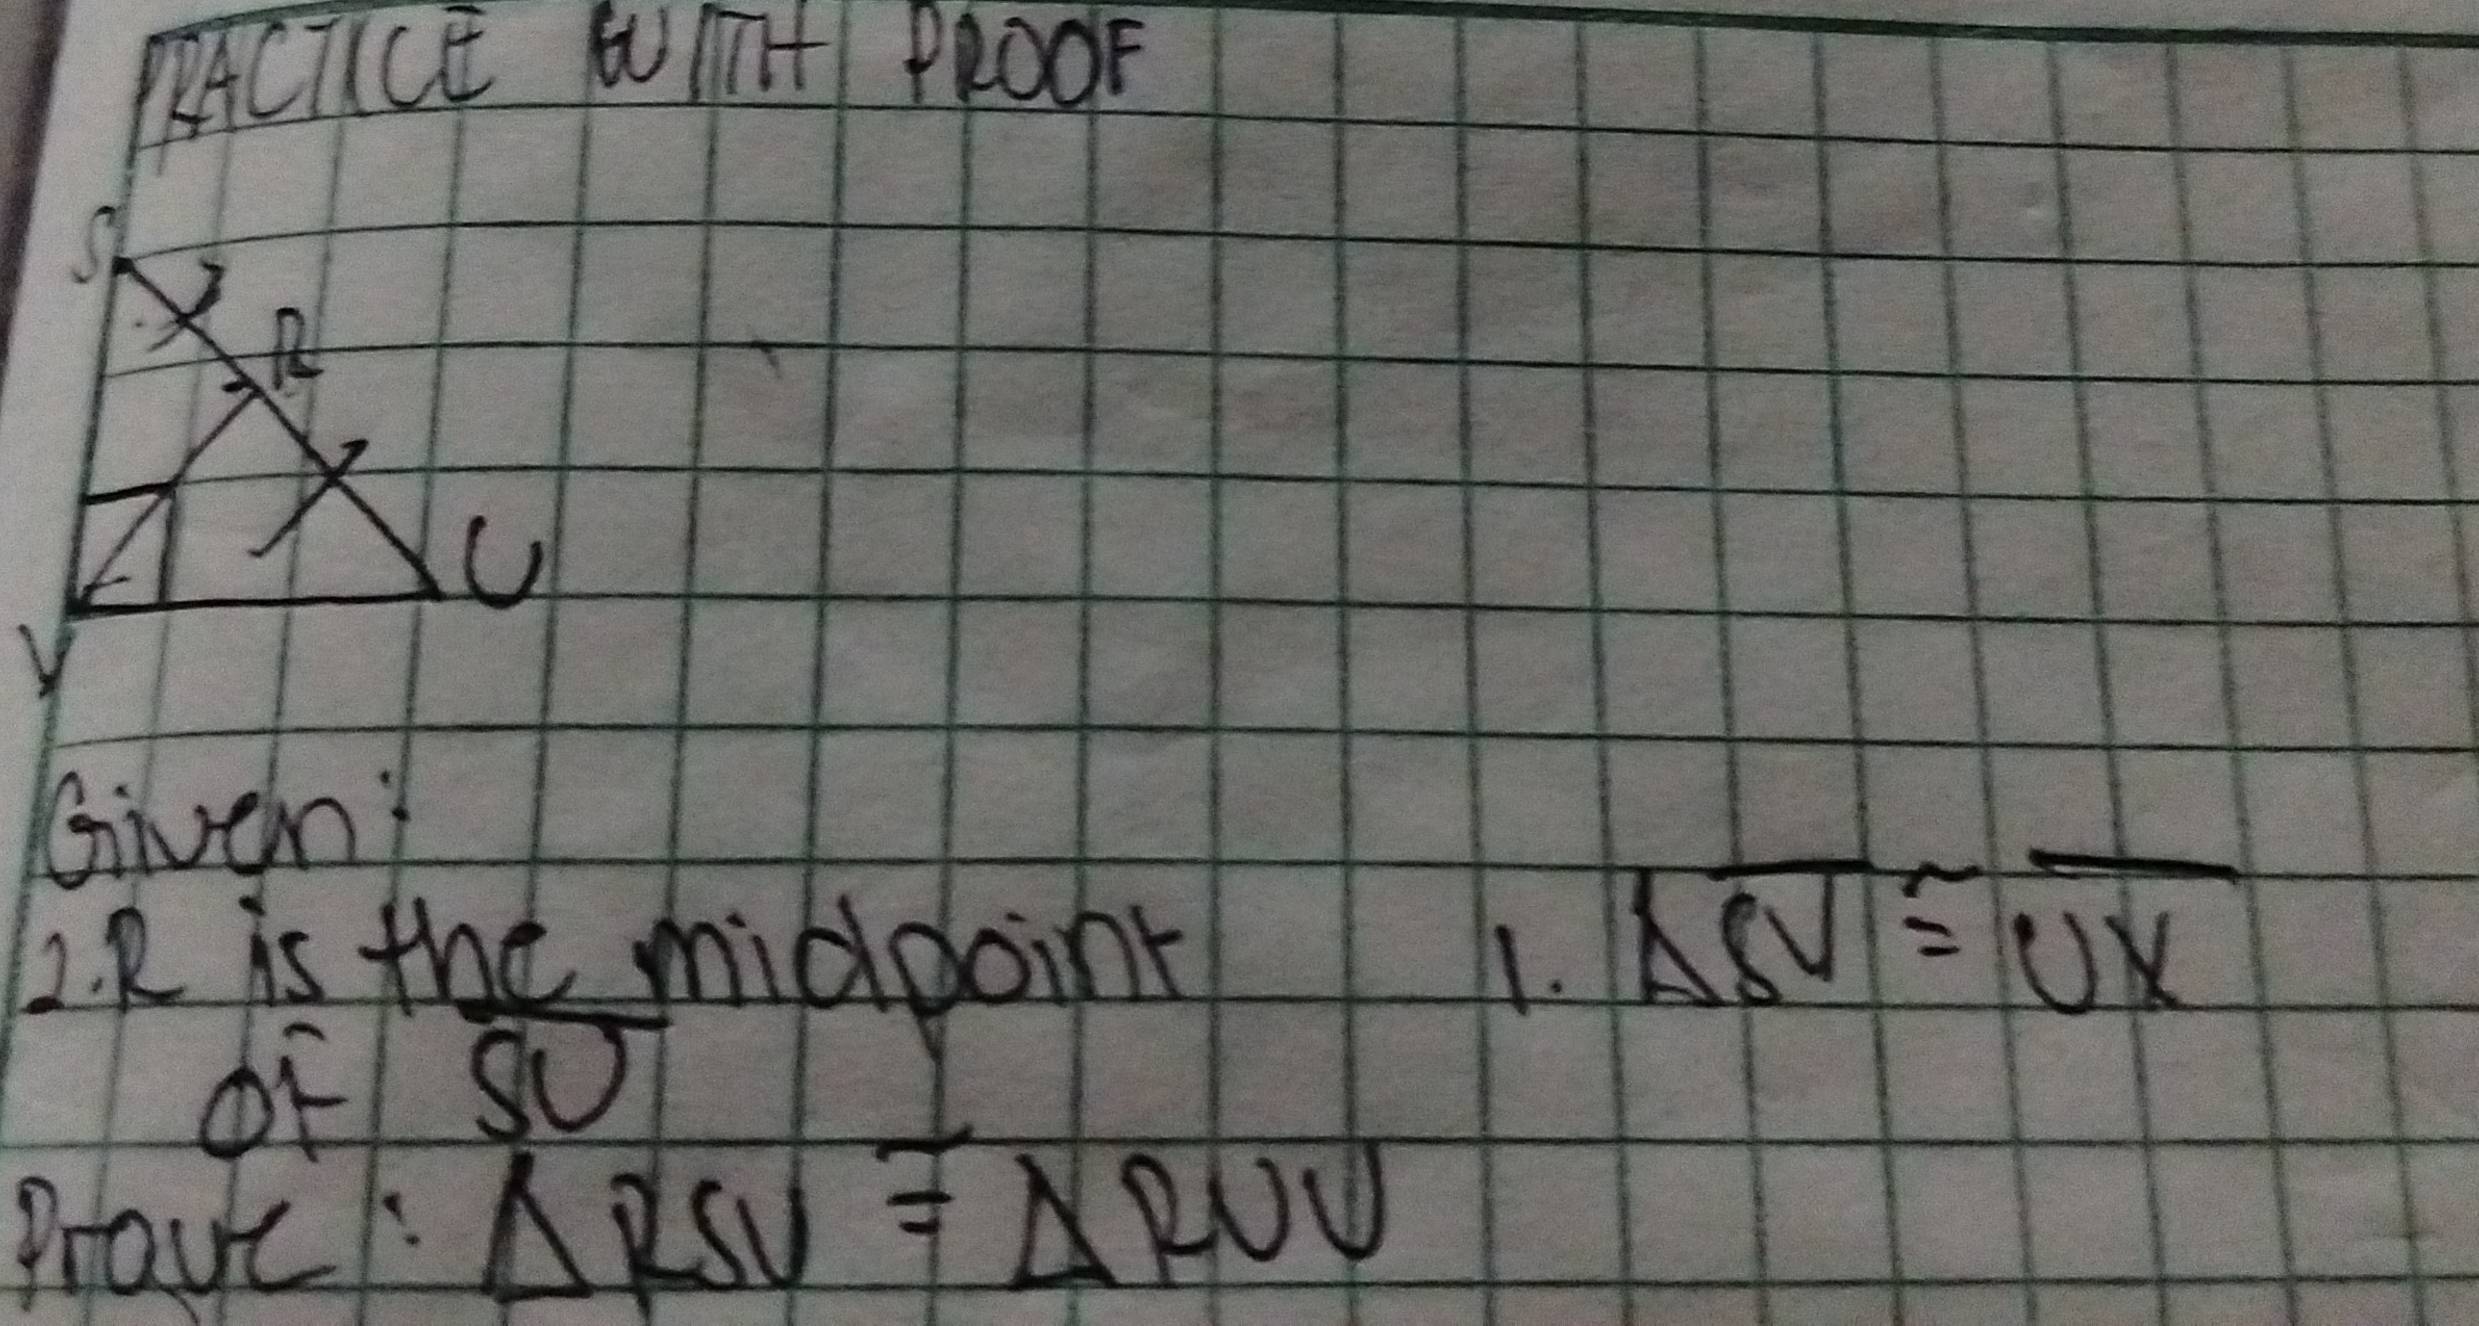 PRACTICE WITH PROOF
S
R
U
V
Given:
2. R is the midpoint
of SU
1. ΔSV ≅ UX
Prove: ΔRSV ≅ ΔRUV